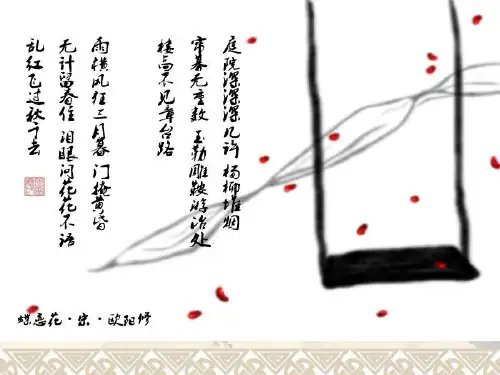 庭院深深深几许 杨柳堆烟
帘幕无重数 玉勒雕鞍游冶处
楼高不见章台路
雨横风狂三月暮 门掩黄昏
无计留春住 泪眼问花花不语
乱红飞过秋千去
蝶恋花·宋·欧阳修